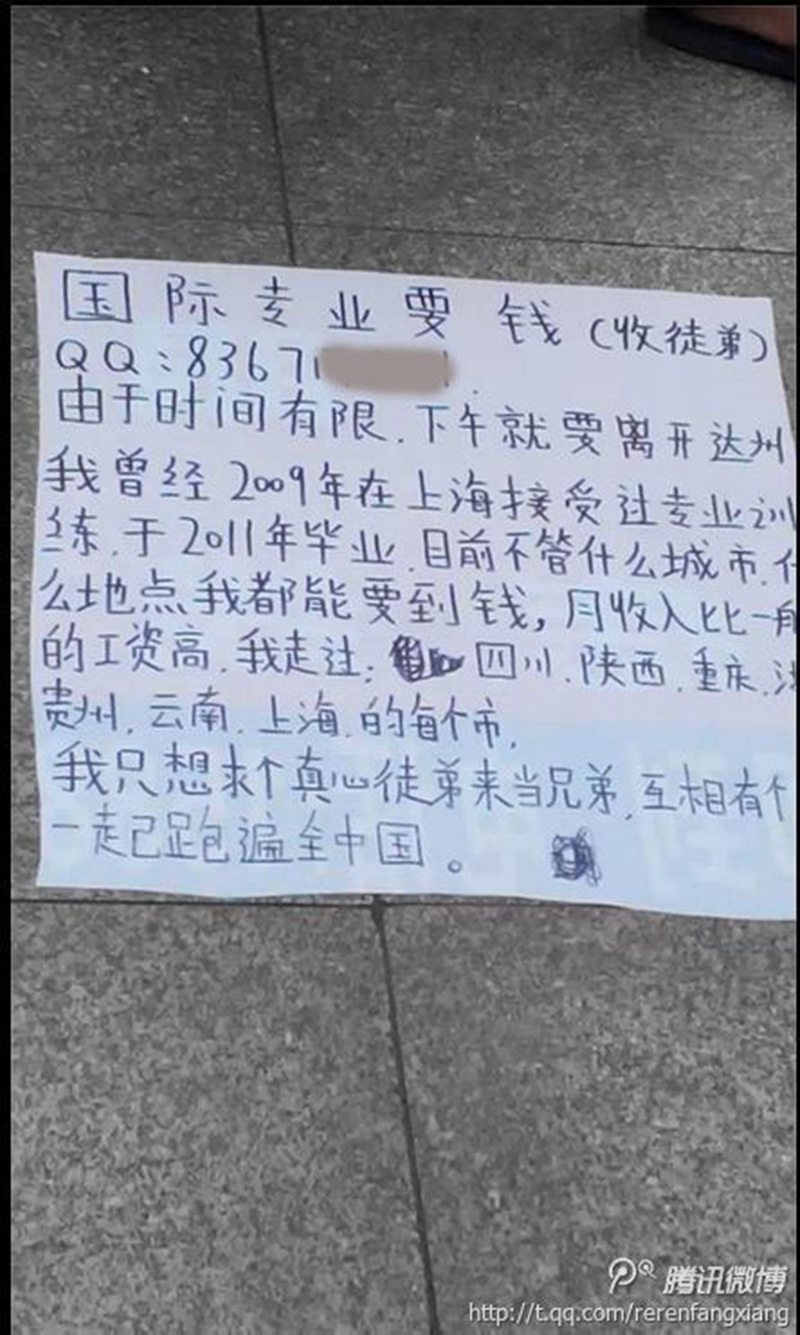 国际专业要钱(收徒弟)
QQ:8367
由于时间有限.下午就要离开达州
我曾经2009年在上海接受过专业训
练.于2011年毕业.目前不管什么城市.什
么地点我都能要到钱,月收入比一般
的工资高.我走过: 四川.陕西.重庆.
贵州.云南.上海.的每个市,
我只想求个真心徒弟来当兄弟.互相有个
一走己跑遍全中国。
腾讯微博
http://t.qq.com/rerenfangxiang